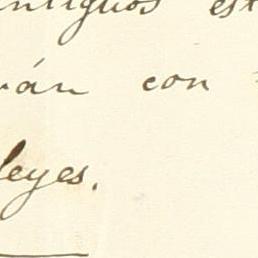 antiguos est
rán con
leyes.